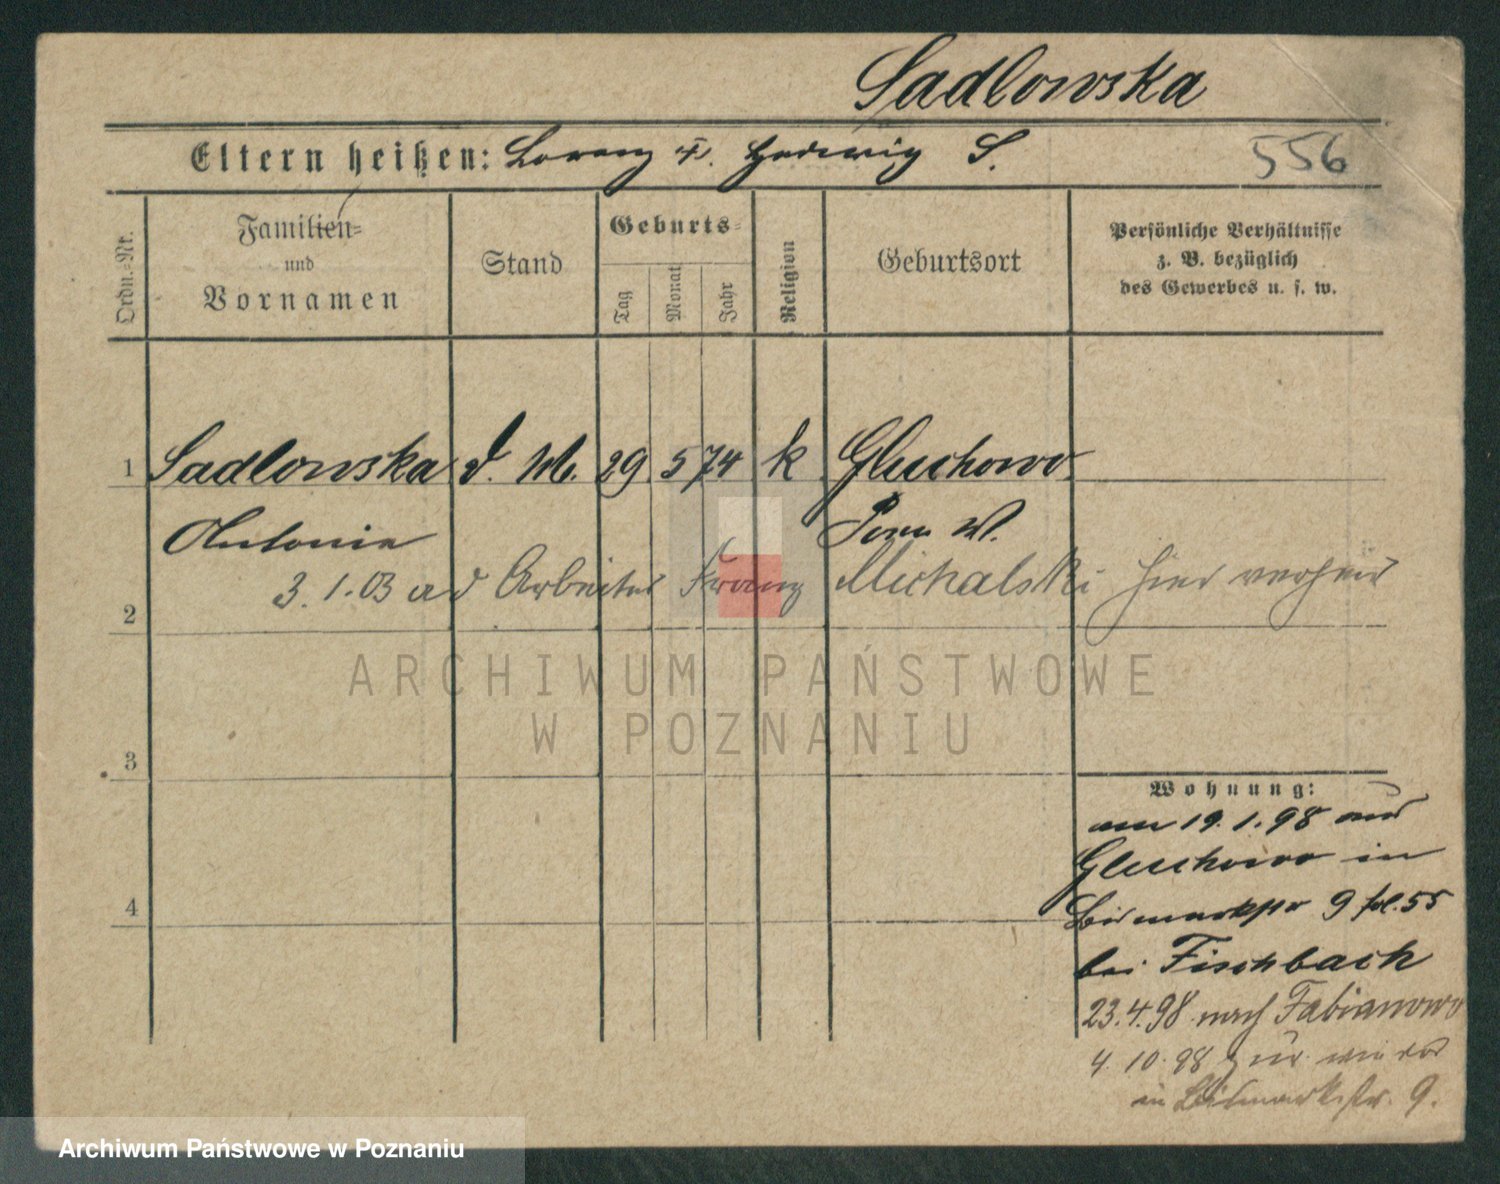 Sadlowska
Eltern heißen: Lorenz u. Hedwig S.
556
Ordn.-Nr.
Familien-
und
Vornamen
Stand
Geburts-
Tag
Monat
Jahr
Religion
Geburtsort
Persönliche Verhältnisse
z. B. bezüglich
des Gewerbes u. s. w.
1 Sadlowska d. M. 29 5 74 k Gluchowo
Antonie Posen W.
3.1.03 a d Arbeiter Franz Michalski hier verheir
2
ARCHIWUM PAŃSTWOWE
W POZNANIU
3
Wohnung:
am 19.1.98 aus
Gluchowo in
4
Bismarckstr 9 fol. 55
bei Fischbach
23.4.98 nach Fabianowo
4.10.98 zur wieder
in Bismarckstr. 9.
Archiwum Państwowe w Poznaniu